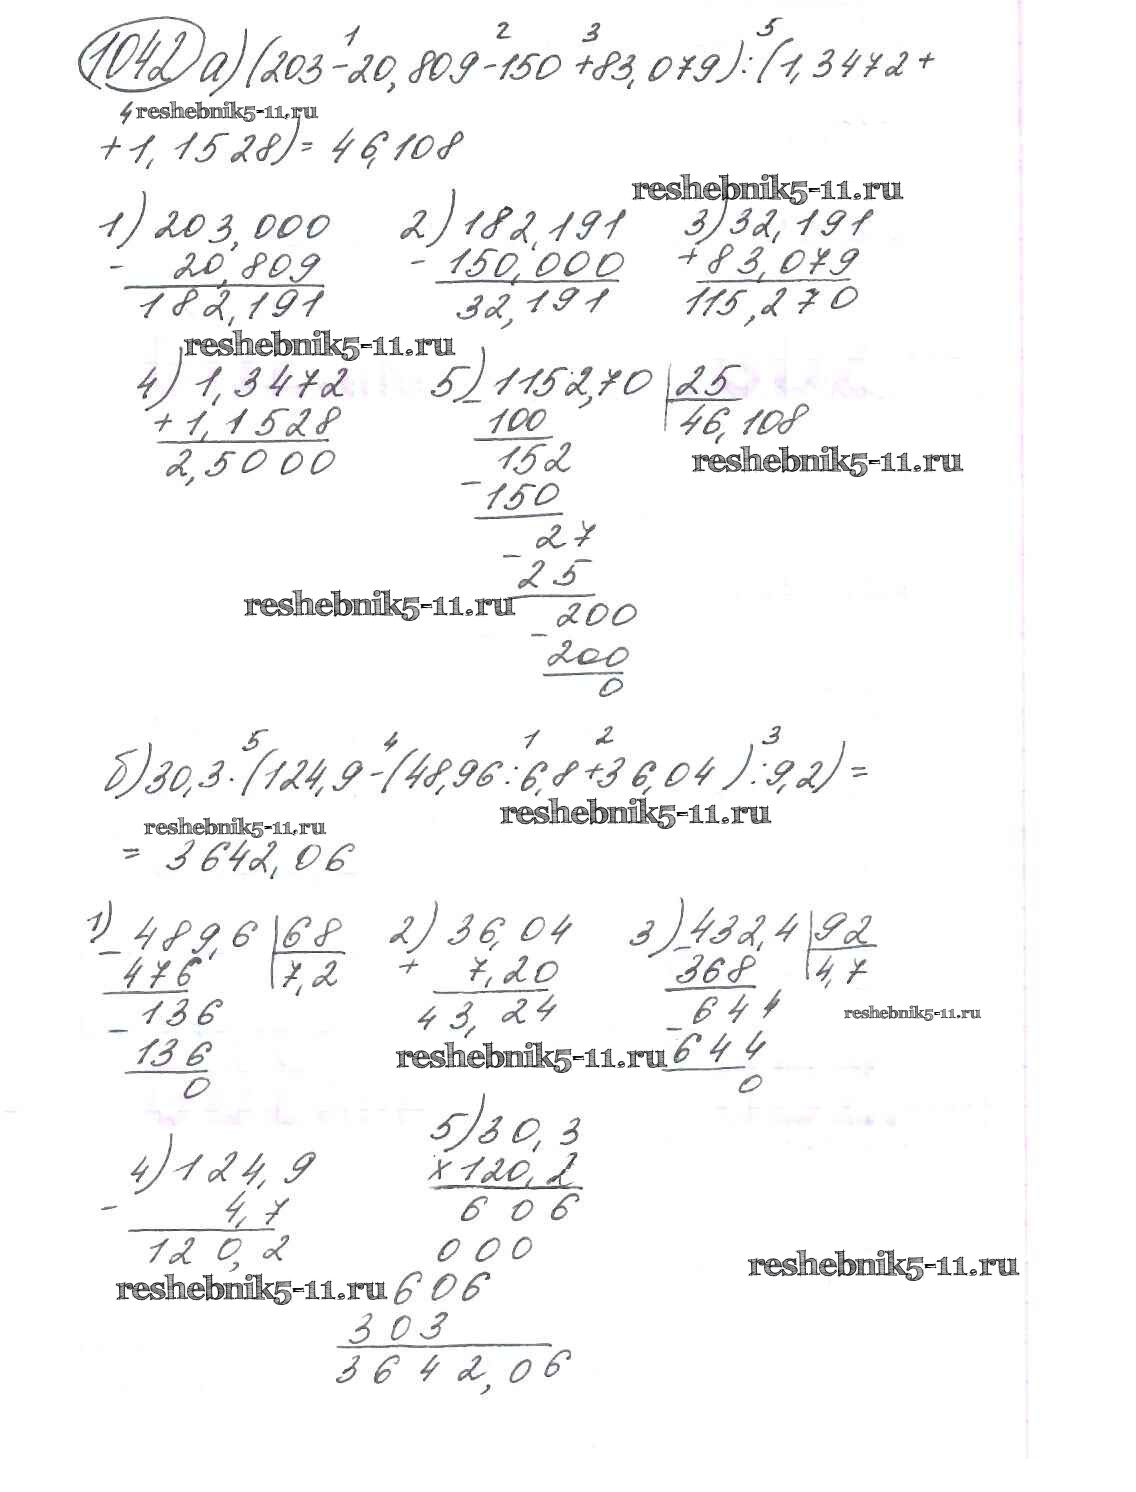 1 2 3 5
1042 а) (203-20,809-150+83,079):(1,3472+
4 reshebnik5-11.ru
+1,1528)=46,108
reshebnik5-11.ru
1) 203,000 2) 182,191 3) 32,191
- 20,809 - 150,000 + 83,079
182,191 32,191 115,270
reshebnik5-11.ru
4) 1,3472 5) 1152,70 25
+ 1,1528 - 100 46,108
2,5000 152 reshebnik5-11.ru
- 150
27
- 25
reshebnik5-11.ru 200
- 200
0
5 4 1 2 3
б) 30,3·(124,9-(48,96:6,8+36,04):9,2)=
reshebnik5-11.ru
reshebnik5-11.ru
= 3642,06
1) 489,6 68 2) 36,04 3) 432,4 92
- 476 7,2 + 7,20 - 368 4,7
- 136 43,24 - 644 reshebnik5-11.ru
136 reshebnik5-11.ru 644
0 0
5) 30,3
4) 124,9 × 120,2
- 4,7 606
120,2 000
reshebnik5-11.ru
reshebnik5-11.ru 606
303
3642,06